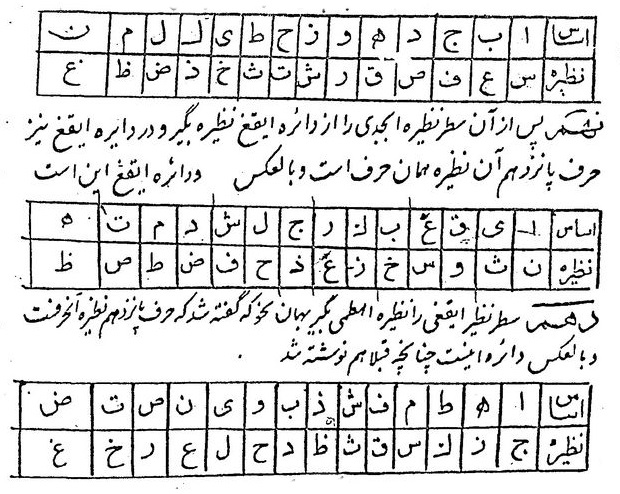 اساس ا ب ج د ه و ز ح ط ی ک ل م ن
نظیره س ع ف ص ق ر ش ت ث خ ذ ض ظ غ
نهم پس از آن سطر نظیره ابجدی را از دائره ایقغ نظیره بگیر و در دایره ایقغ نیز
حرف پانزدهم آن نظیره همان حرف است و بالعکس ودائره ایقغ این است
اساس ا ی ق غ ب ک ر ج ل ش د م ت ه
نظیره ن ث و س خ ز ع ذ ح ف ض ط ص ظ
دهم سطر نظیر ایقغی را نظیره اهطمی بگیر بهمان نحو که گفته شد که حرف پانزدهم نظیره آنحرفست
و بالعکس دائره اینست چنانچه قبلا هم نوشته شد .
اساس ا ه ط م ف ش ذ ب و ی ن ص ت ض
نظیره ج ز ک س ق ث ظ د ح ل ع ر خ غ